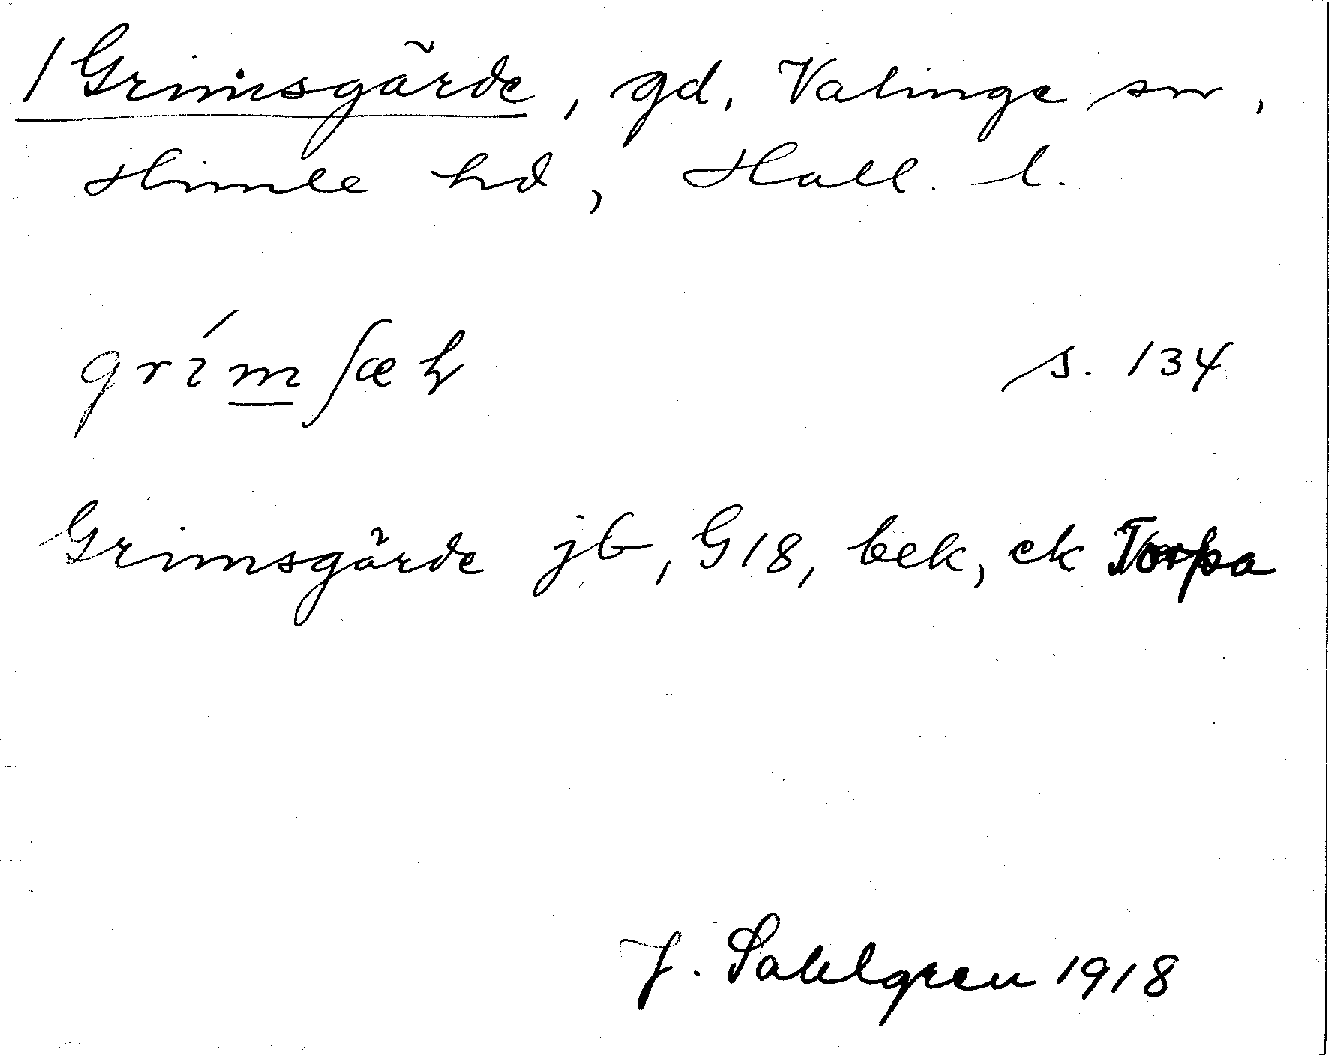 /Grimsgärde, gd. Valinge sn,
Himle hd, Hall. l.
grímʃæɦ s. 134
Grimsgärde jb, G18, bek, ek Torpa
J. Sahlgren 1918